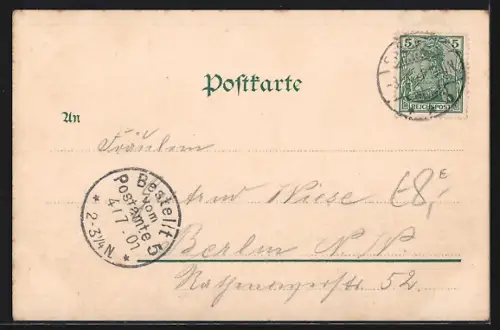 Postkarte
5 5
REICHSPOST
An
Fräulein
Wiese
Berlin N.W.
52.
Bestellt
vom
Postamte 5
4/7.01
* 2-3¼N. *